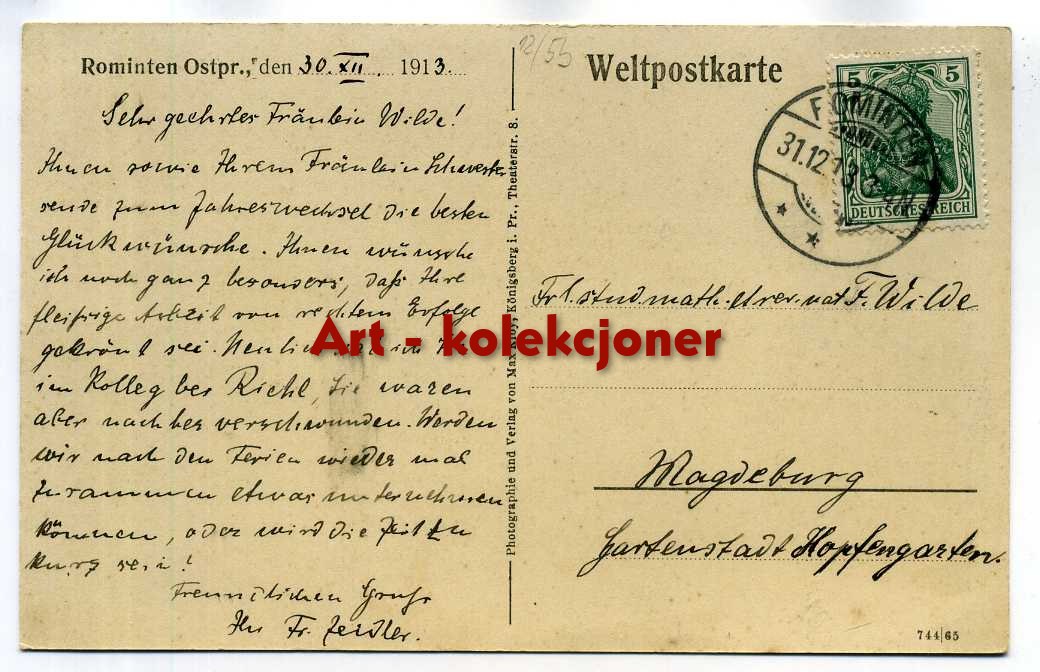 Rominten Ostpr., den 30. XII. 1913.
Sehr geehrtes Fräulein Wilde!
Ihnen sowie Ihrem Fräulein Schwester
sende zum Jahreswechsel die besten
Glückwünsche. Ihnen wünsche
ich noch ganz besonders, daß Ihre
fleißige Arbeit von rechtem Erfolge
gekrönt sei. Neulich
im Kolleg bei Riehl, Sie waren
aber nachher verschwunden. Werden
wir nach den Ferien wieder mal
zusammen etwas unternehmen
können, oder wird die Zeit zu
kurz sein!
Freundlichen Gruß
Ihr Fr. Zeidler.
Photographie und Verlag von Max Königsberg i. Pr., Theaterstr. 8.
12/55
Weltpostkarte
5 5
DEUTSCHES REICH
ROMINTEN
31.12.13
Frl. stud. math. et rer. nat F. Wilde
Magdeburg
Gartenstadt Hopfengarten.
744|65
Art - kolekcjoner